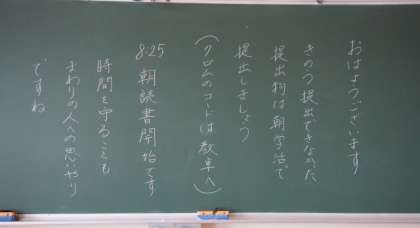 おはようございます
きのう提出できなかった
提出物は朝学活で
提出しましょう
(クロムのコードは教卓へ)
8:25 朝読書開始です
時間を守ることも
まわりの人への思いやり
ですね